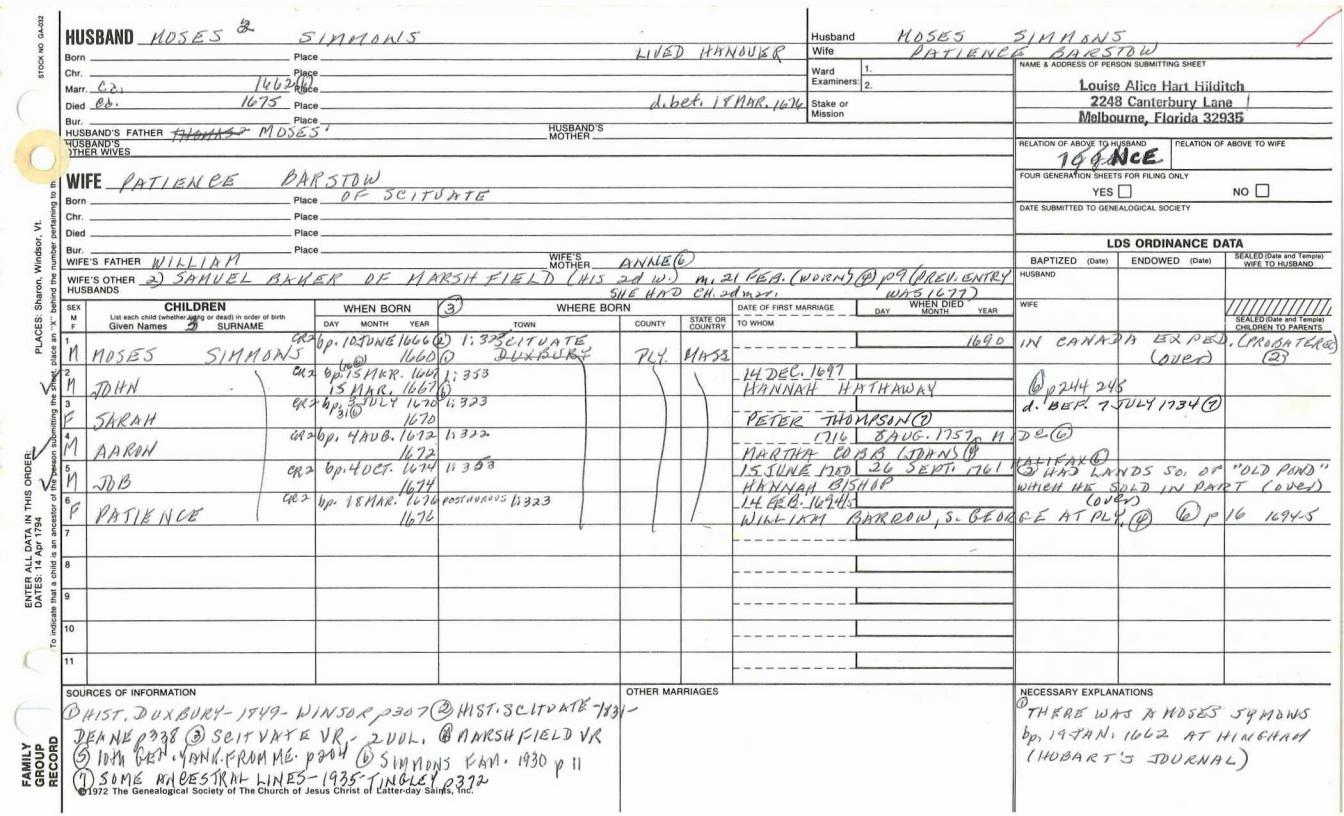 STOCK NO. GA-032
PLACES: Sharon, Windsor, Vt.
ENTER ALL DATA IN THIS ORDER:
DATES: 14 Apr 1794
To indicate that a child is an ancestor of the person submitting the sheet, place an "X" behind the number pertaining to th
FAMILY GROUP RECORD
HUSBAND MOSES 2 SIMMONS
Born Place LIVED HANOVER
Chr. Place
Marr. Ca. 1662 (6) Place
Died Ca. 1675 Place d. bet. 18 MAR. 1676
Bur. Place
HUSBAND'S FATHER THOMAS2 MOSES' HUSBAND'S MOTHER
HUSBAND'S OTHER WIVES
WIFE PATIENCE BARSTOW
Born Place OF SCITUATE
Chr. Place
Died Place
Bur. Place
WIFE'S FATHER WILLIAM WIFE'S MOTHER ANNE (6)
WIFE'S OTHER HUSBANDS 2) SAMUEL BAKER OF MARSHFIELD (HIS 2d W.) m. 21 FEB. (WORN) (4) p9 (PREV. ENTRY
SHE HAD CH. 2d mar. WAS 1677)
Husband MOSES SIMMONS
Wife PATIENCE BARSTOW
Ward Examiners: 1.
2.
Stake or Mission
NAME & ADDRESS OF PERSON SUBMITTING SHEET
Louise Alice Hart Hilditch
2248 Canterbury Lane
Melbourne, Florida 32935
RELATION OF ABOVE TO HUSBAND RELATION OF ABOVE TO WIFE
NCE
FOUR GENERATION SHEETS FOR FILING ONLY
YES NO
DATE SUBMITTED TO GENEALOGICAL SOCIETY
LDS ORDINANCE DATA
BAPTIZED (Date) ENDOWED (Date) SEALED (Date and Temple) WIFE TO HUSBAND
HUSBAND
WIFE
SEALED (Date and Temple) CHILDREN TO PARENTS
SEX M F
CHILDREN
List each child (whether living or dead) in order of birth
Given Names 3 SURNAME
WHEN BORN (3) WHERE BORN
DAY MONTH YEAR TOWN COUNTY STATE OR COUNTRY
DATE OF FIRST MARRIAGE
TO WHOM
WHEN DIED
DAY MONTH YEAR
1 CR2 bp. 10 JUNE 1666 (2) 1:323 SCITUATE 1690 IN CANADA EXPED. (PROBATE RE)
M MOSES SIMMONS 1660 (1) DUXBURY PLY. MASS (over) (2)
2 CR2 bp. 15 MAR. 1667 1:353 14 DEC. 1697
M JOHN 15 MAR. 1667 (6) HANNAH HATHAWAY (6) p244 245
3 CR2 bp. 3 JULY 1670 1:323 d. BEF. 7 JULY 1734 (7)
F SARAH 31 (6) 1670 PETER THOMPSON (7)
4 CR2 bp. 4 AUG. 1672 1:322 1716 8 AUG. 1757
M AARON 1672 MARTHA COBB (JOHN)
5 CR2 bp. 4 OCT. 1674 1:353 15 JUNE 1700 26 SEPT. 1761 HALIFAX (6)
M JOB 1674 HANNAH BISHOP (2) HAD LANDS SO. OF "OLD POND" WHICH HE SOLD IN PART (over)
6 CR2 bp. 18 MAR. 1676 POSTHUMOUS 1:323 14 FEB. 1694/5 (over)
F PATIENCE 1676 WILLIAM BARROW, S. GEORGE AT PLY. (4) (6) p16 1694-5
7
8
9
10
11
SOURCES OF INFORMATION
(1) HIST. DUXBURY - 1849 - WINSOR p307 (2) HIST. SCITUATE - 1831 -
DEANE p338 (3) SCITUATE VR - 2 VOL. (4) MARSHFIELD VR
(5) 10th GEN. YANK. FROM ME. p204 (6) SIMMONS FAM. 1930 p 11
(7) SOME ANCESTRAL LINES - 1935 - TINGLEY p372
©1972 The Genealogical Society of The Church of Jesus Christ of Latter-day Saints, Inc.
OTHER MARRIAGES
NECESSARY EXPLANATIONS
(1) THERE WAS A MOSES SYMONS
bp. 19 JAN. 1662 AT HINGHAM
(HOBART'S JOURNAL)